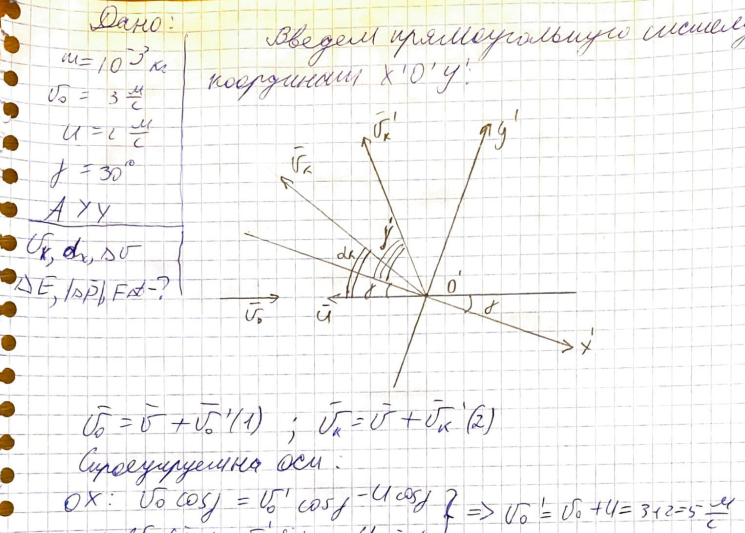 Дано:
m=10⁻³ кг
υ₀ = 3 м/с
u = 2 м/с
γ = 30°
АУУ
ῡₖ, αₖ, Δυ
ΔE, |Δp̄|, FΔt-?
Введем прямоугольную систему
координат X'O'Y'.
ῡₖ
ῡₖ'
y'
αₖ
γ'
γ
O'
γ
ῡ₀
ū
x'
ῡ₀ = ῡ + ῡ₀' (1) ; ῡₖ = ῡ + ῡₖ' (2)
Спроецируем на оси:
OX: υ₀ cosγ = υ₀' cosγ - u cosγ } => υ₀' = υ₀ + u = 3+2=5 м/с